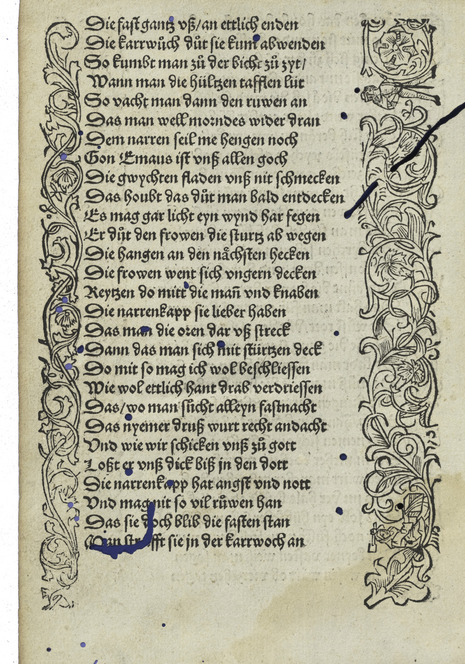 Die fast gantz vß/an ettlich enden
Die karrwůch důt sie kum abwenden
So kumbt man zů der bicht zů zyt/
Wann man die hültzen tafflen lüt
So vacht man dann den ruwen an
Das man well morndes wider dran
Dem narren seil me hengen noch
Gon Emaus ist vnß allen goch
Die gwychten fladen vnß nit schmecken
Das houbt das důt man bald entdecken
Es mag gar licht eyn wynd har fegen
Er důt den frowen die stürtz ab wegen
Die hangen an den nächsten hecken
Die frowen went sich vngern decken
Reytzen do mitt die man̄ vnd knaben
Die narrenkapp sie lieber haben
Das man die oren dar vß streck
Dann das man sich mit stürtzen deck
Do mit so mag ich wol beschliessen
Wie wol ettlich hant drab verdriessen
Das/wo man sücht alleyn fastnacht
Das nyemer druß wurt recht andacht
Vnd wie wir schicken vnß zů gott
Loßt er vnß dick biß in den dott
Die narrenkapp hat angst vnd nott
Vnd mag nit so vil růwen han
Das sie doch blib die fasten stan
sie in der karrwoch an